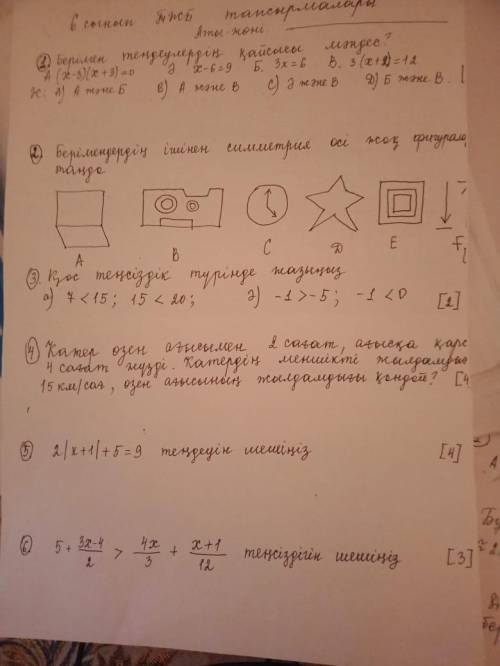 6 сынып ТЖБ тапсырмалары
Аты-жөні
1. Берілген теңдеулердің қайсысы мәндес?
А (x-3)(x+3)=0 Ә x-6=9 Б. 3x=6 В. 3(x+2)=12
Ж: А) А және Б В) А және В С) Ә және В Д) Б және В. [
2. Берілгендердің ішінен симметрия осі жоқ фигура
таңда
A B C D E F
3. Қос теңсіздік түрінде жазыңыз
а) 7 < 15; 15 < 20; ә) -1 > -5; -1 < 0 [2]
4. Катер өзен ағысымен 2 сағат, ағысқа қарс
4 сағат жүзді. Катердің меншікті жылдамды
15 км/сағ, өзен ағысының жылдамдығы қандай? [4
5. 2|x+1|+5=9 теңдеуін шешіңіз [4]
6. 5+ (3x-4)/2 > 4x/3 + (x+1)/12 теңсіздігін шешіңіз [3]